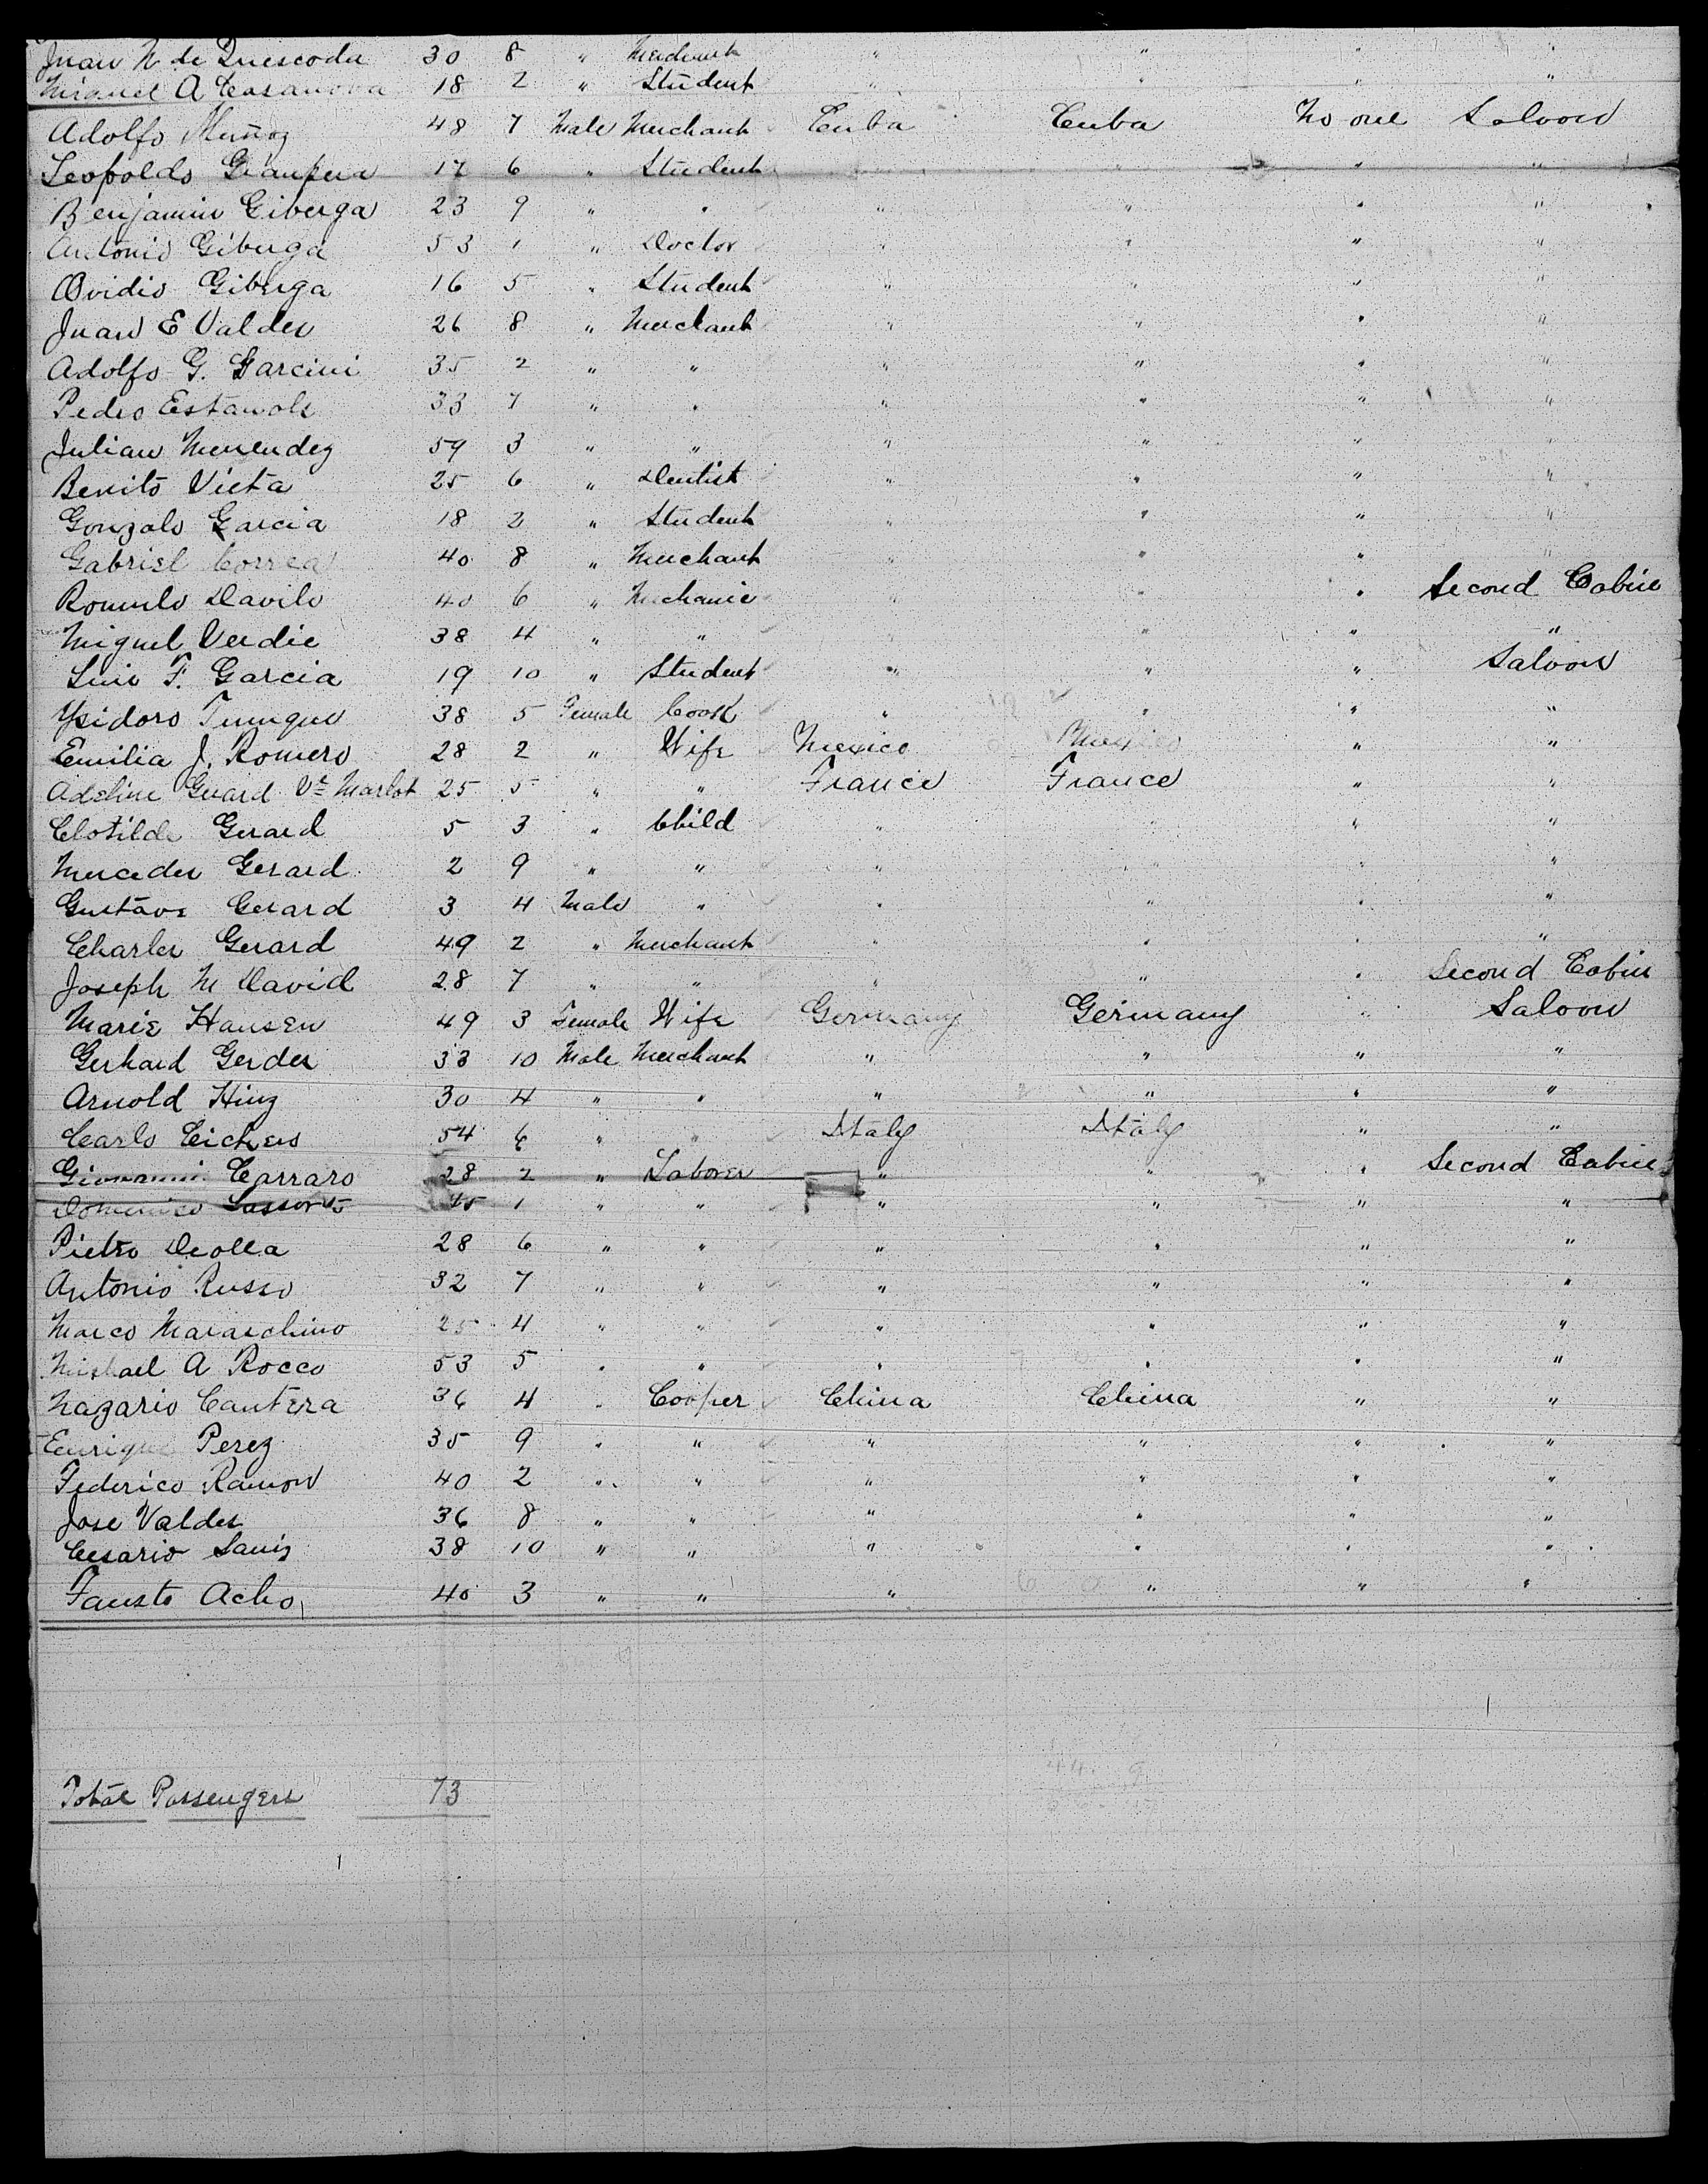 Juan N de Quescoda 30 8 " Merchant " " " "
Miguel A Casanova 18 2 " Student " " " "
Adolfo Muñoz 48 7 Male Merchant Cuba Cuba No one Saloon
Leopoldo 17 6 " Student " " "
Benjamin Giberga 23 9 " " " " " "
Antonio Giberga 53 1 " Doctor " " " "
Ovidio Giberga 16 5 " Student " " " "
Juan E Valdes 26 8 " Merchant " " " "
Adolfo G. Garcini 35 2 " " " " " "
Pedro Estanols 33 7 " " " " " "
Julian Menendez 59 3 " " " " " "
Benito Vieta 25 6 " Dentist " " " "
Gonzalo Garcia 18 2 " Student " " " "
Gabriel Correa 40 8 " Merchant " " " "
Romulo Davilo 40 6 " Mechanic " " " Second Cabin
Miguel Verdie 38 4 " " " " "
Luis F. Garcia 19 10 " Student " " " Saloon
Ysidoro 38 5 Female Cook " " " "
Emilia J. Romero 28 2 " Wife Mexico Mexico " "
Adeline Gerard Ve Marlot 25 5 " " France France " "
Clotilde Gerard 5 3 " Child " " " "
Mercedes Gerard 2 9 " " " " " "
Gustave Gerard 3 4 Male " " " " "
Charles Gerard 49 2 " Merchant " " " "
Joseph M David 28 7 " " " " " Second Cabin
Marie Hansen 49 3 Female Wife Germany Germany " Saloon
Gerhard Gerdes 33 10 Male Merchant " " " "
Arnold Hinz 30 4 " " " " " "
Carlo 54 6 " " Italy Italy " "
Giovanni Carraro 28 2 " Laborer " " " Second Cabin
Domenico 45 1 " " " " " "
Pietro Deolla 28 6 " " " " " "
Antonio Russo 32 7 " " " " " "
Marco Maraschino 25 4 " " " " " "
Michael A Rocco 53 5 " " " " " "
Nazario Cantera 36 4 " Cooper China China " "
Enrique Perez 35 9 " " " " " "
Federico Ramon 40 2 " " " " " "
Jose Valdes 36 8 " " " " " "
Cesario Saniz 38 10 " " " " " "
Fausto Acho 40 3 " " " " " "
Total Passengers 73